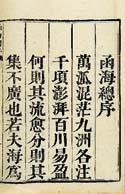 函海總序
萬泒混茫九洲各注
千頃澎湃百川易盈
何則其流愈分則其
集不廣也若夫海為